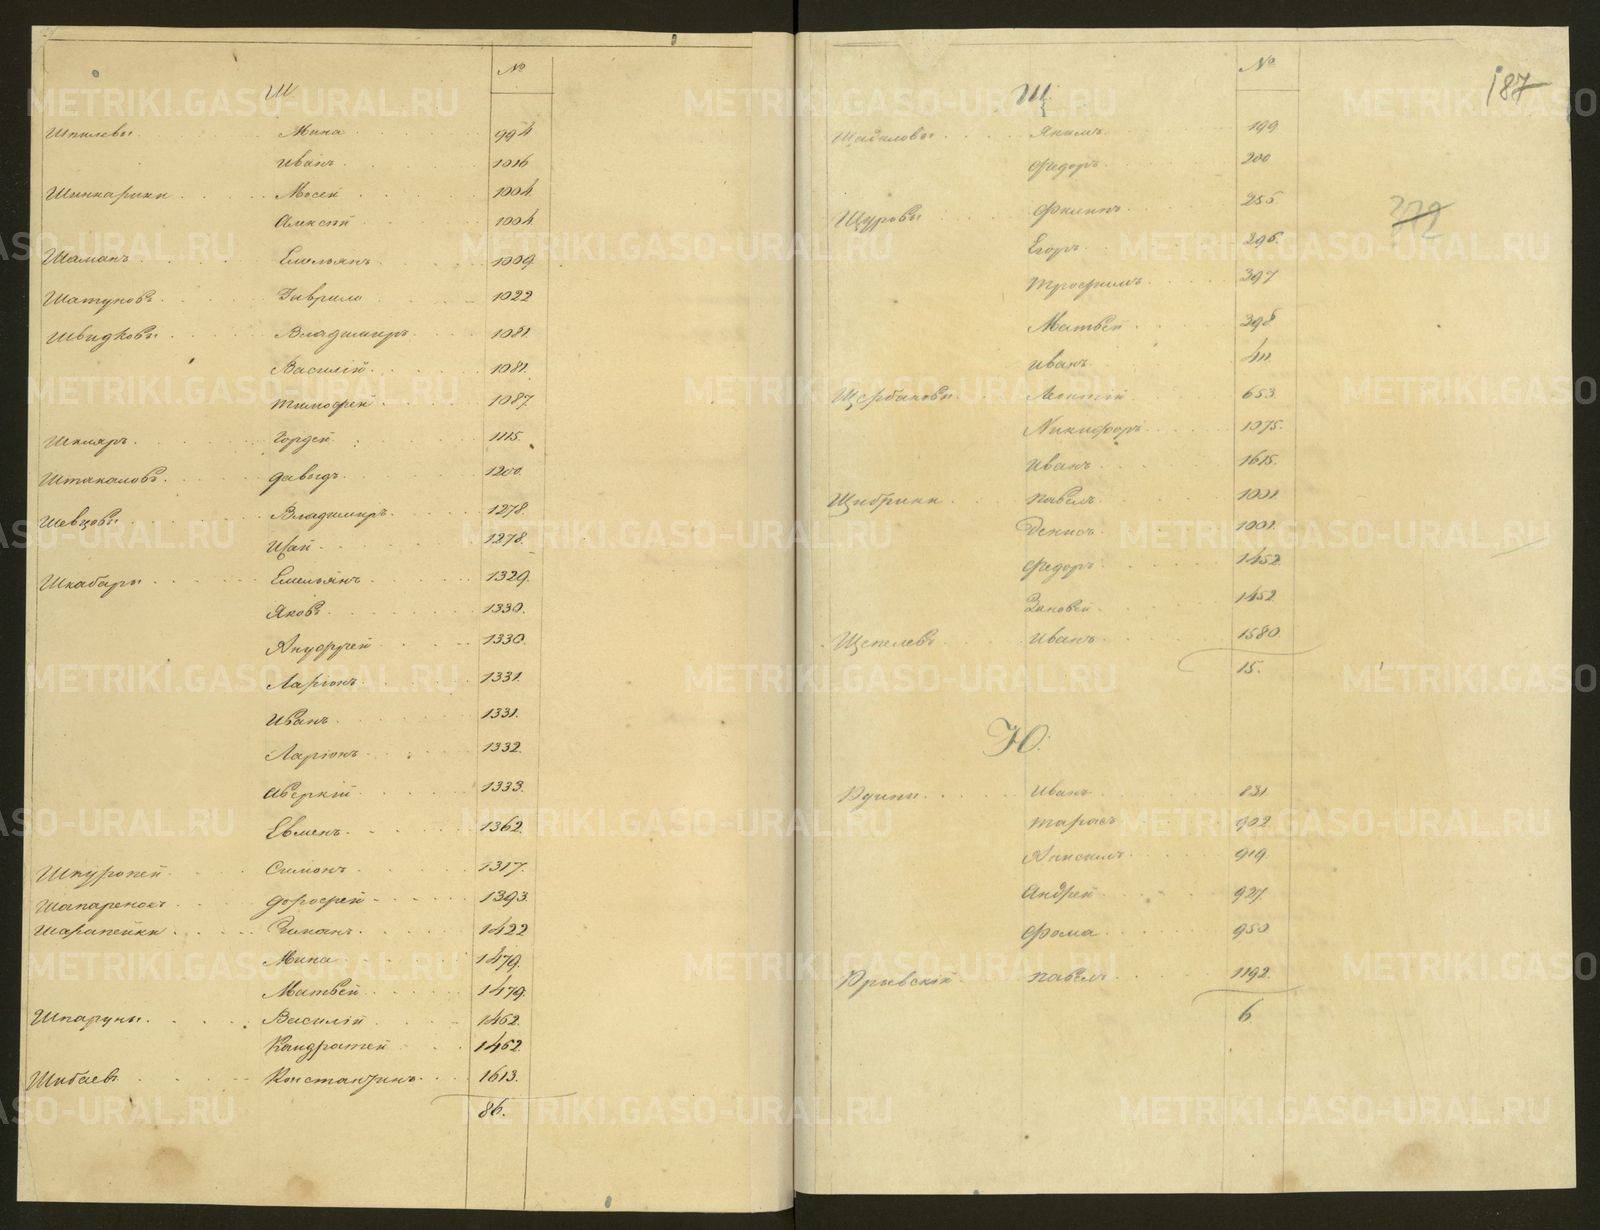 №
Ш
Шпилевы Мина 994
Иванъ 1016
Шинкарики Мосей 1004
Алексѣй 1004
Шаманъ Емельянъ 1009
Шатуновъ Гаврило 1022
Швидковы Владимиръ 1081.
Василій 1081.
Тимофей 1087.
Шкляръ Гордей 1115.
Штакаловъ Давыдъ 1200.
Шевцовы Владимиръ 1278.
1278.
Шкабары Емельянъ 1329.
Яковъ 1330.
Ануфрей 1330.
Ларіонъ 1331.
Иванъ 1331.
Ларіонъ 1332.
Аверкій 1333.
Евменъ 1362.
Шкуропей Симонъ 1317.
Шапаренокъ Дорофей 1393.
Шарапейки 1422
Мина 1479.
Матвѣй 1479.
Шпаруны Василій 1462.
Кандратей 1462.
Шибаевъ Константинъ 1613.
86.
№
187
Щ
Щадиловы Якимъ 199
Федоръ 200
372
Щуровы Филипъ 255
Егоръ 296.
Трофимъ 397
Матвѣй 398
Иванъ 411.
Щербаковы Леонтій 653.
Никифоръ 1075.
Иванъ 1615.
Щибрики Павелъ 1001.
Денисъ 1001.
Федоръ 1452.
Зановей 1452.
Щепелевъ Иванъ 1580.
15.
Ю.
Юдины Иванъ 831
Тарасъ 902
919.
Андрей 927.
Фома 950
Юрьевскій Павелъ 1192.
6
METRIKI.GASO-URAL.RU